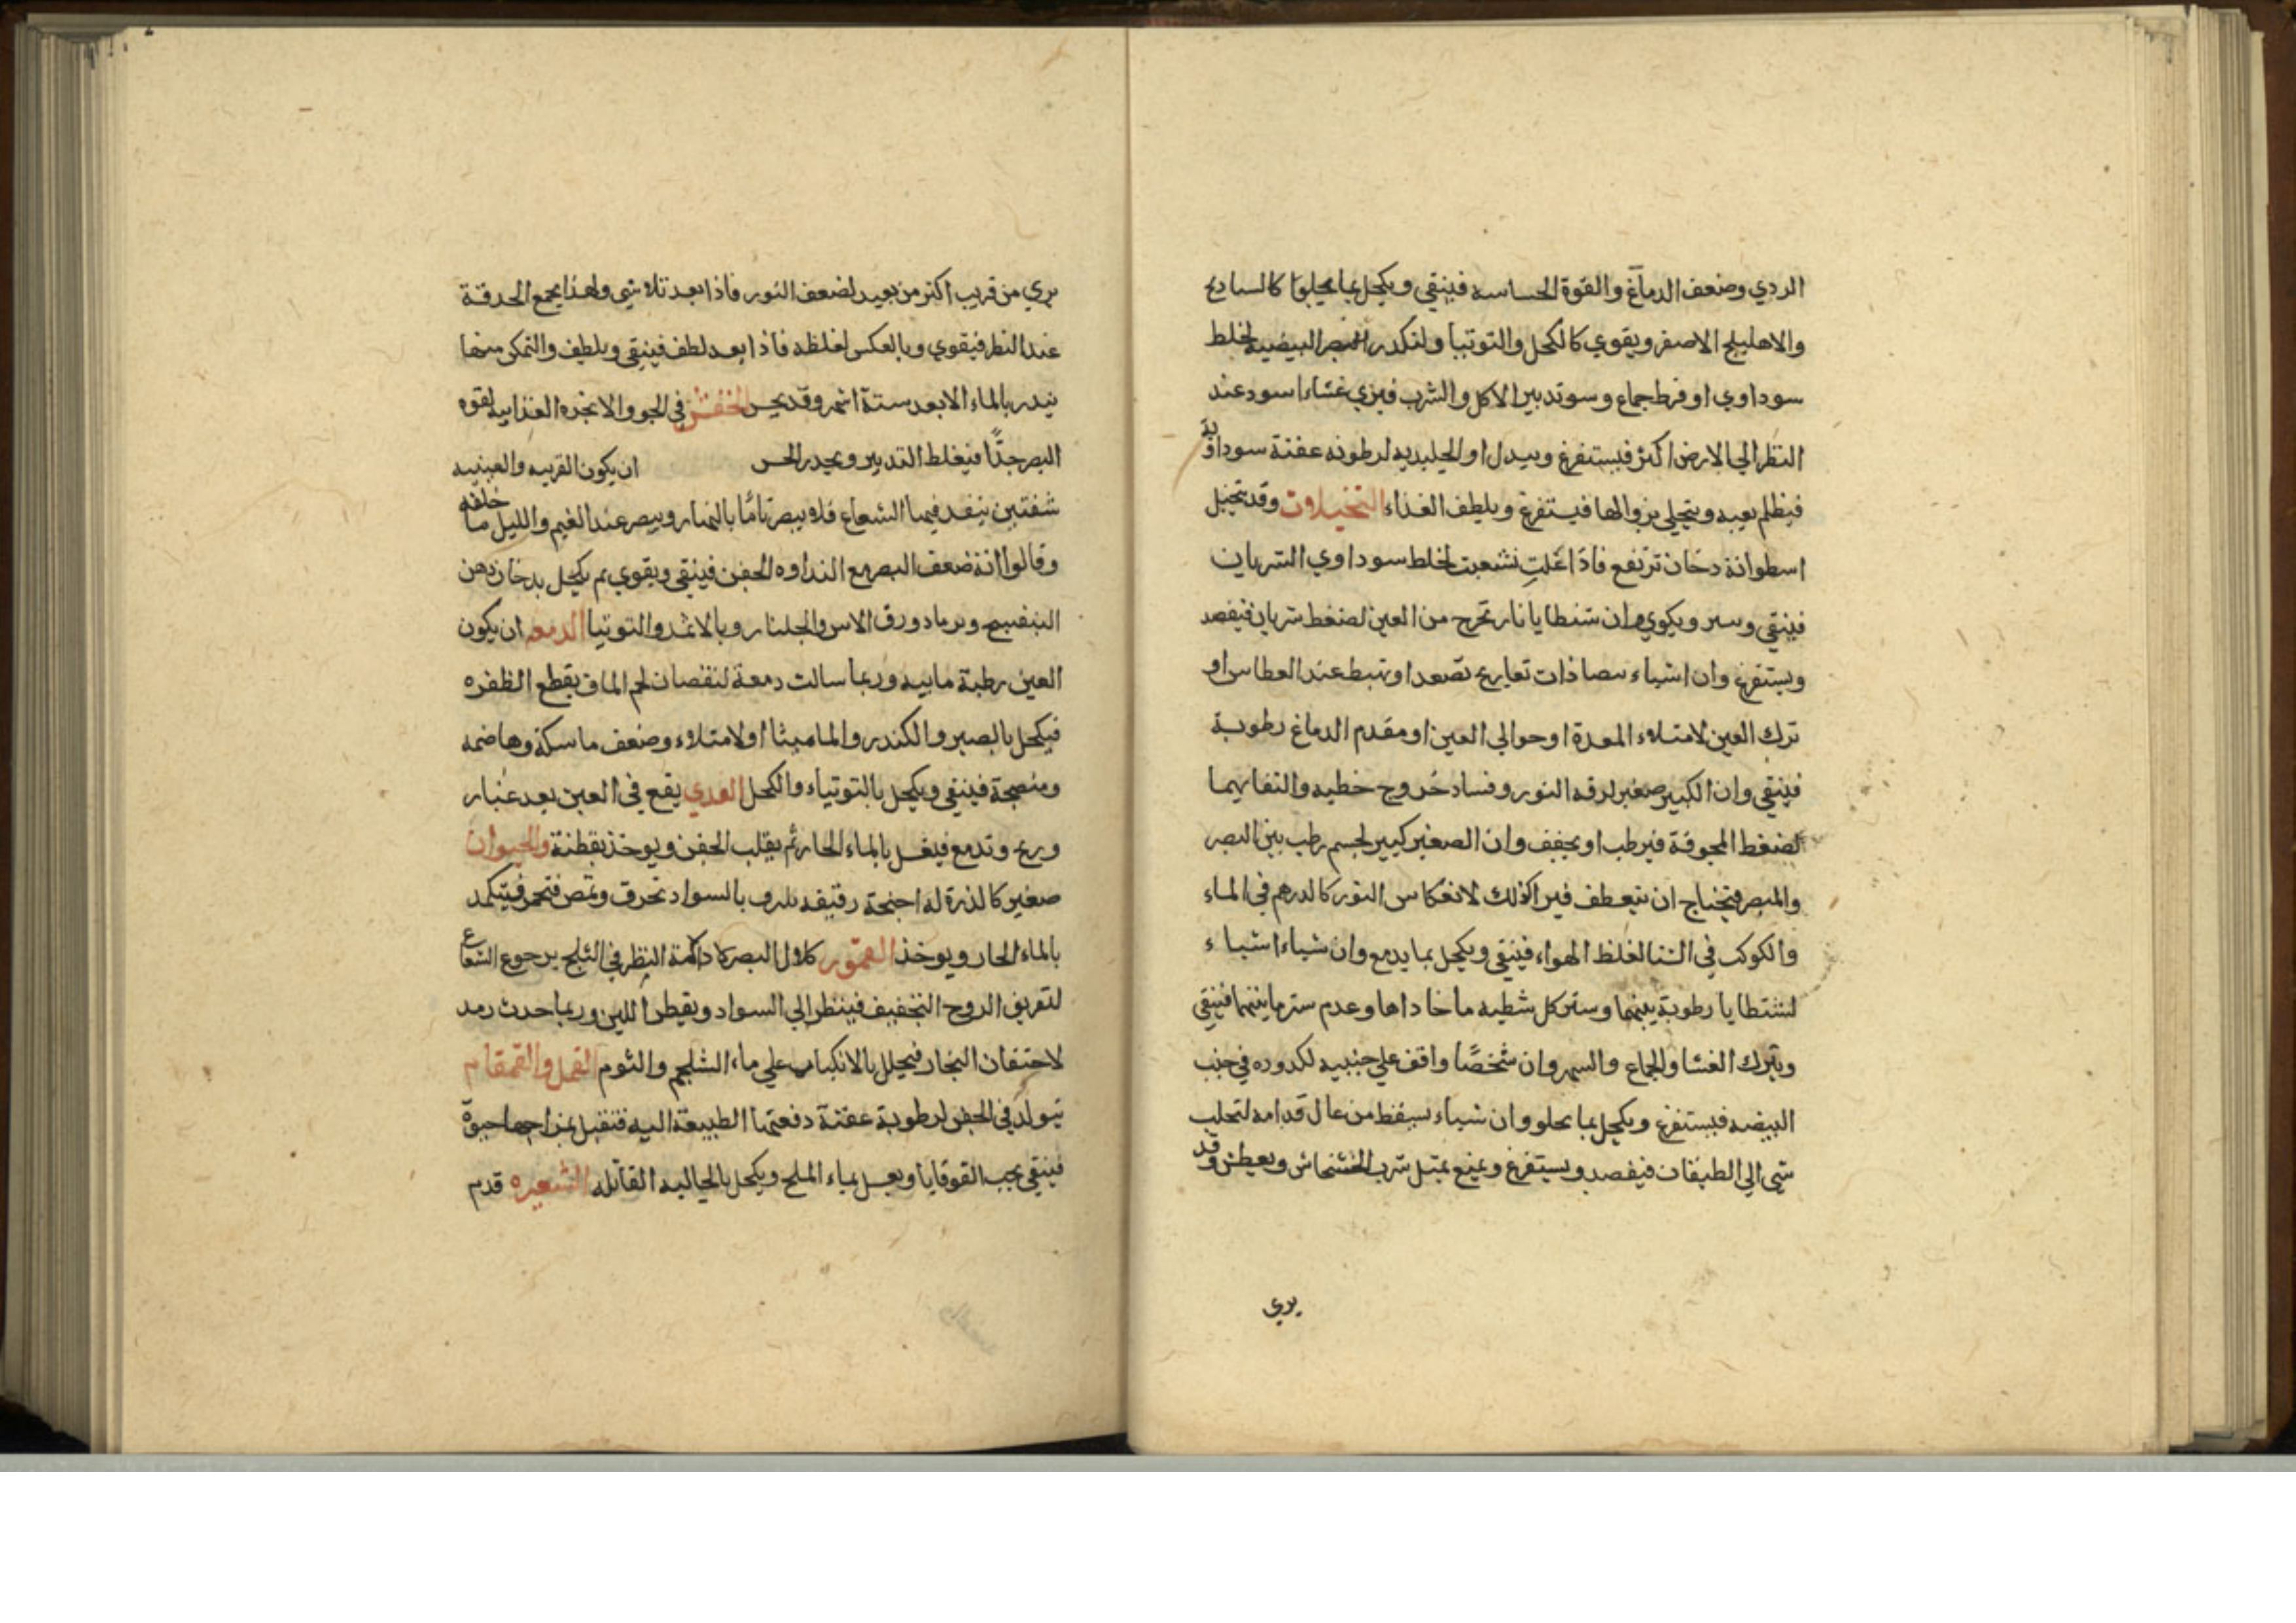 الردي وضعف الدماغ والقوة الحساسه فينقي ويكحل بما يجلوا كالسادج
والاهليلج الاصفر ويقوي كالكحل والتوتيا ولتكدر البيضيه لخلط
سوداوي او فرط جماع وسو تدبير الاكل والشرب فيري غشاء اسود عند
النظر الي الارض اكثر فيستفرغ ويبدل او الجليديه لرطوبه عفنة سوداوية
فيظلم بعيد ويتجلي بزوالها فيستفرغ ويلطف الغذاء التخيلات وقد يتخيل
اسطوانة دخان ترتفع فاذا غلت تشعبت لخلط سوداوي الشريان
فينقي ويكوي وان شظايا نار تخرج من العين لضغط شريان فيفصد
ويستفرغ وان اشياء ذات تعاريج تصعد او تهبط عند العطاس او
ترك العين لامتلاء المعدة او حوالي العين او مقدم الدماغ رطوبة
فينقي وان الكبير صغير لرقه النور وفساد خروج خطيه والتفافهما
لضغط المجوفة فيرطب او يجفف وان الصغير كبير لجسم رطب بين البصر
والمبصر فيحتاج ان ينعطف فيراكذلك لانعكاس النور كالدرهم في الماء
والكوكب في الشتا لغلظ الهواء فينقي ويكحل بما يدمع وان شياء اشياء
لتشظايا رطوبة بينهما وستر كل شظيه ما حاداها وعدم ستر ما بينهما فينقي
ويترك العشا والجماع والسهر وان شخصًا واقف علي جنبيه لكدوره في جنب
البيضه فيستفرغ ويكحل بما يجلو وان شياء سيقط من عال قدامه لتحلب
شي الي الطبقات فيفصد ويستفرغ ويمنع بمثل شرب الخشخاش ويعطش وقد
يري
يري من قريب اكثر من بعيد لضعف النور فاذا بعد تلاشي ولهذا يجمع الحدقة
عند النظر فيقوي وبالعكس لغلظه فاذا بعد لطف فينقي ويلطف والتمكن منها
يندر بالماء الا بعد ستة اشهر وقد يحسن الخفش في الجو والابخره الغذاييه لقوه
البصر جدًّا فيغلظ التدبير ويخدر الحس ان يكون القرنيه والعنبيه
شفتين ينفد فيها الشعاع فلا يبصر تامًا بالنهار ويبصر عند الغيم والليل ما خلفه
وقالوا انه ضعف البصر مع النداوه الجفن فينقي ويقوي ثم يكحل بدخان دهن
البنفسج وبرماد ورق الاس والجلنار وبالاثمد والتوتيا الدمعه ان يكون
العين رطبة ماييه وربما سالت دمعة لنقصان لحم الماق بقطع الظفره
فيكحل بالصبر والكندر والماميثا او لامتلاء وضعف ماسكة وهاضمه
ومنضجة فينقي ويكحل بالتوتياء والكحل القدي يقع في العين بعد غبار
وريح وتدمع فيغسل بالماء الحار ثم يقلب الجفن ويوخذ بقطنة والحيوان
صغير كالذرة له اجنحة رقيقه بالسواد تحرق وتمص فتحمر فيتكمد
بالماء الحار ويوخذ القمور كلال البصر كادامة النظر في الثلج برجوع الشعاع
لتفريق الروح التجفيف فينظر الي السواد ويقطر اللبن وربما حدث رمد
لاحتقان البخار فيحلل بالانكباب علي ماء الشلجم والثوم القمل والقمقام
تيولد في الجفن لرطوبة عفنة دفعتها الطبيعة اليه فتقبل بمزاجها حيوة
فينقي بحب القوقايا ويغسل بماء الملح ويكحل بالجاليه القاتله الشعيره قدم